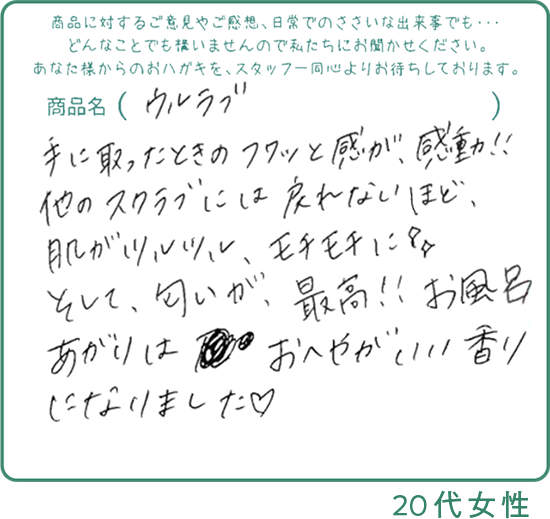 商品に対するご意見やご感想、日常でのささいな出来事でも・・・
どんなことでも構いませんので私たちにお聞かせください。
あなた様からのおハガキを、スタッフ一同心よりお待ちしております。
商品名 ( ウルラブ )
手に取ったときのフワッと感が、感動!!
他のスクラブには戻れないほど、
肌がツルツル、モチモチに
そして、匂いが、最高!! お風呂
あがりは おへやがいい香り
になりました♡
20代女性